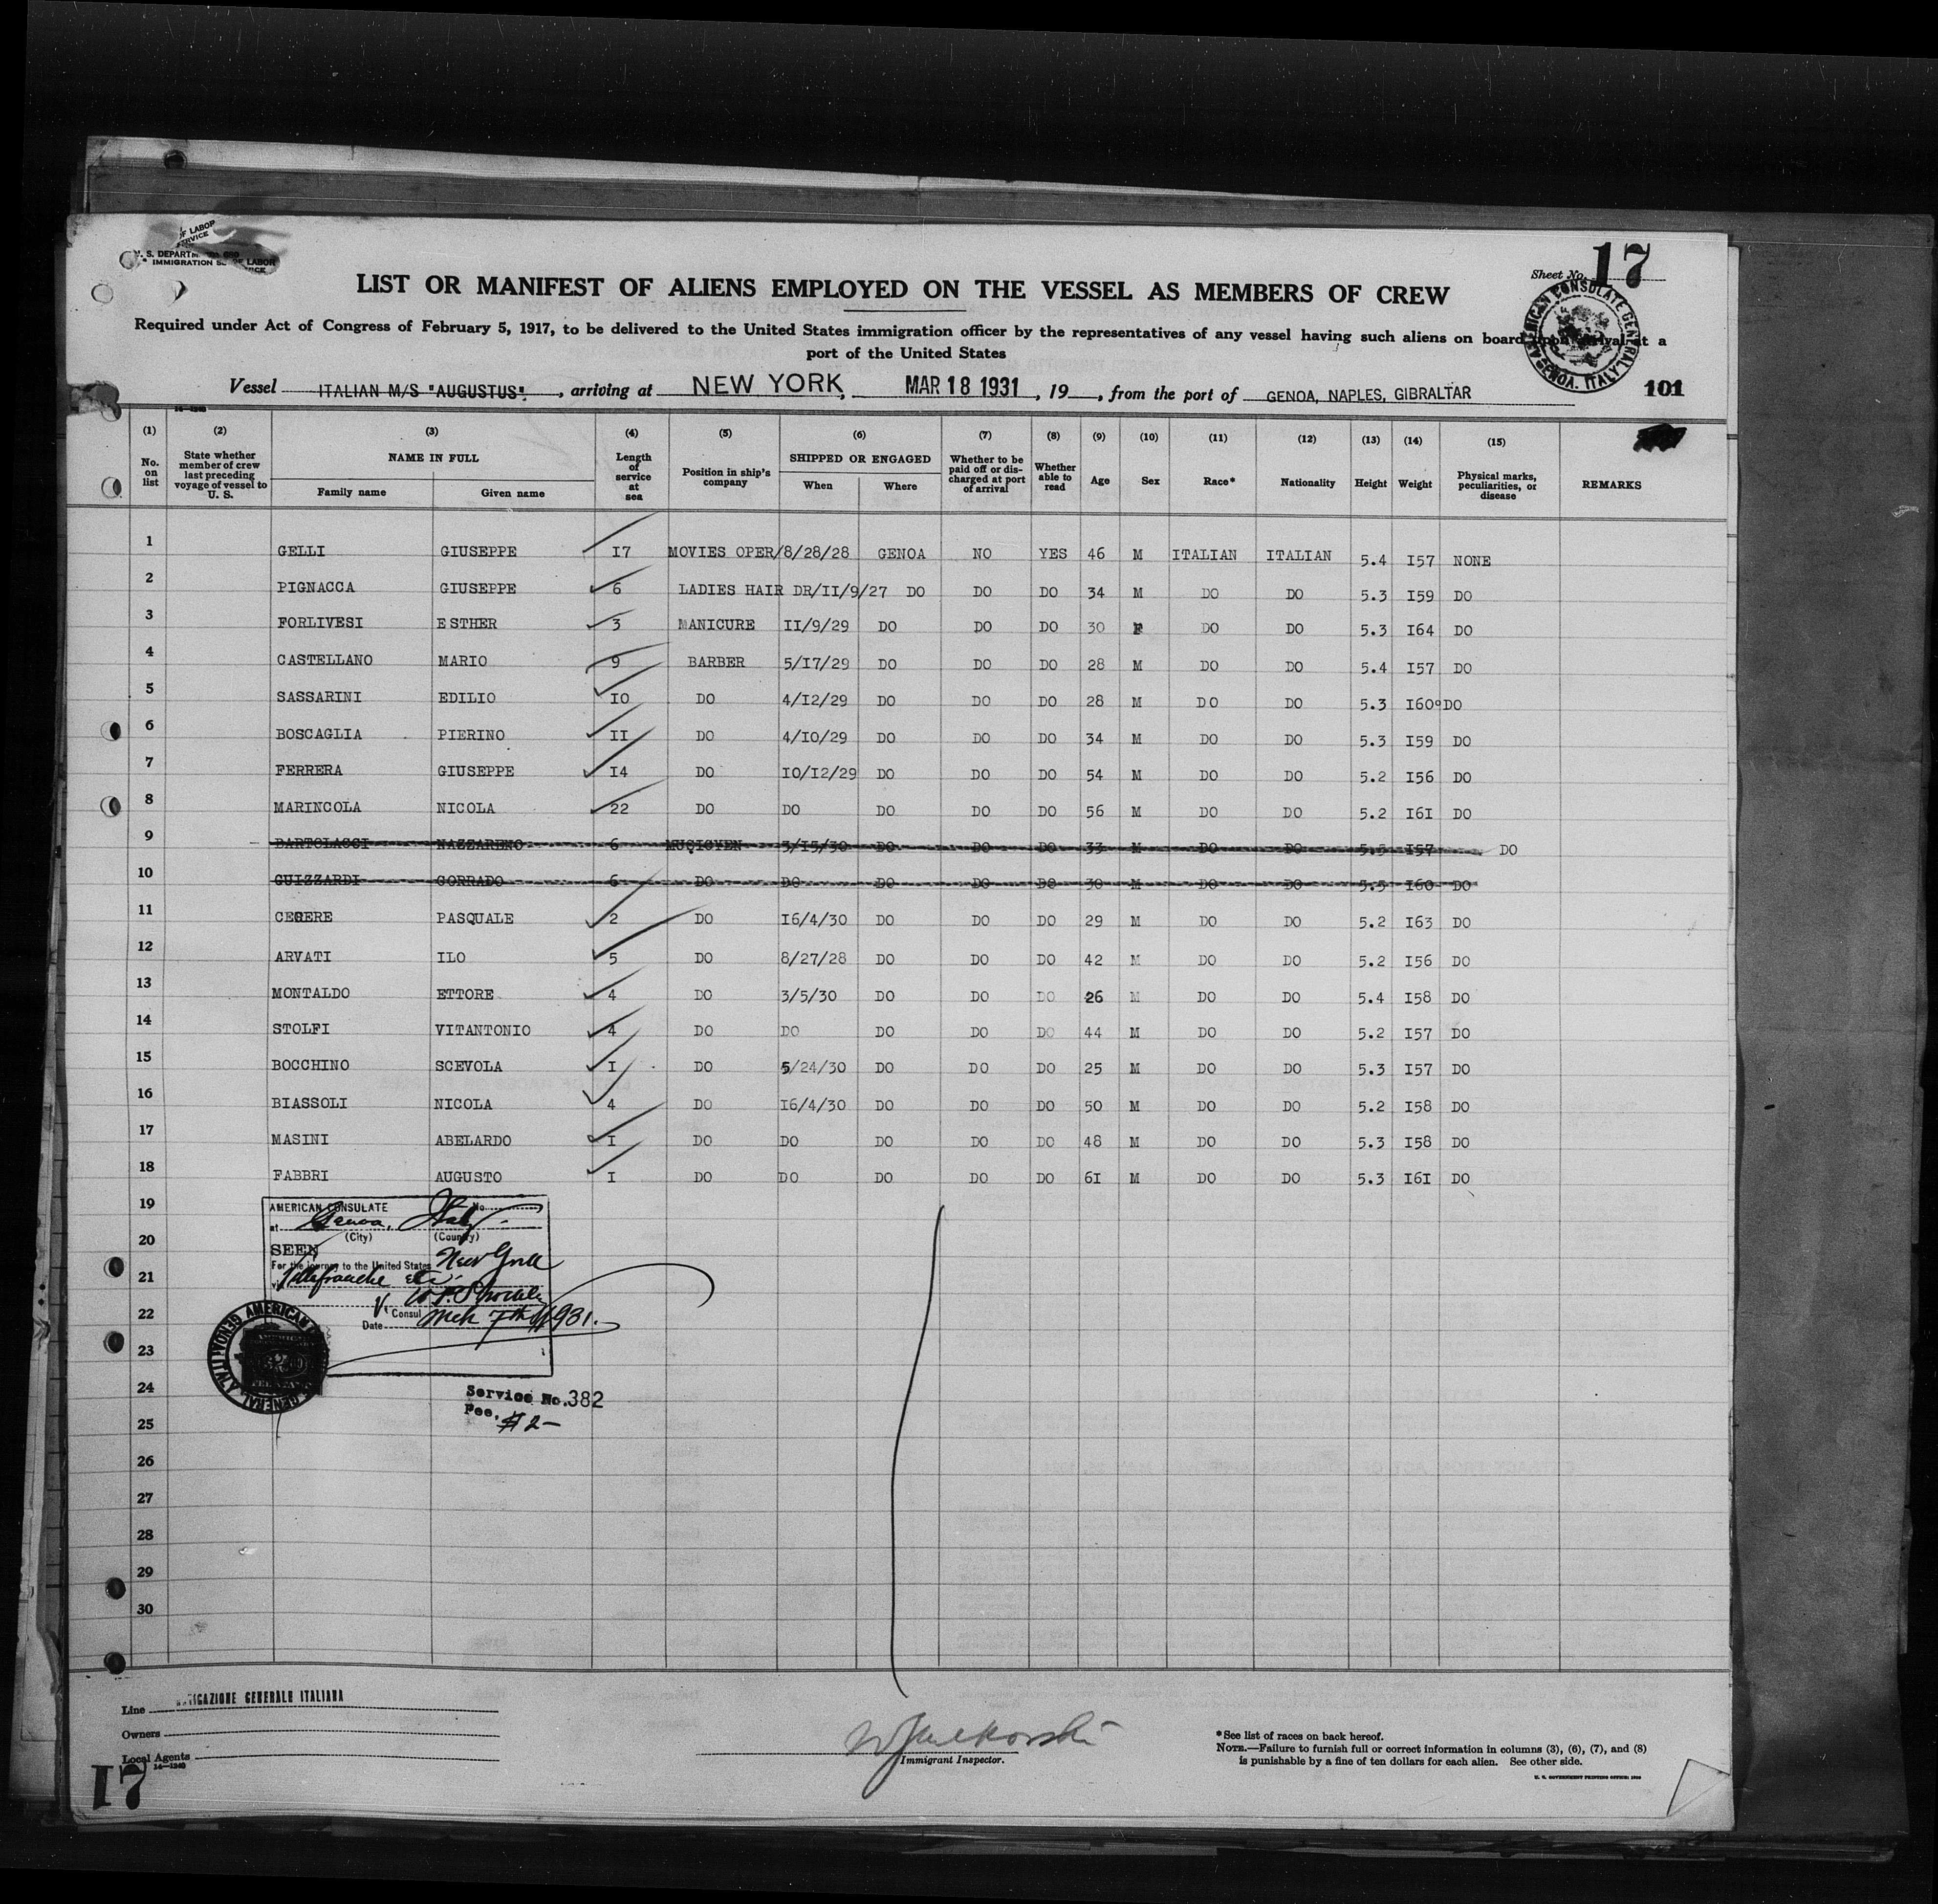 U. S. DEPARTMENT OF LABOR
IMMIGRATION SERVICE
Sheet No. 17
LIST OR MANIFEST OF ALIENS EMPLOYED ON THE VESSEL AS MEMBERS OF CREW
AMERICAN CONSULATE GENERAL GENOA. ITALY
Required under Act of Congress of February 5, 1917, to be delivered to the United States immigration officer by the representatives of any vessel having such aliens on board upon arrival at a
port of the United States
Vessel ITALIAN M/S "AUGUSTUS", arriving at NEW YORK, MAR 18 1931, 19 , from the port of GENOA, NAPLES, GIBRALTAR 101
14—1240
(1) (2) (3) (4) (5) (6) (7) (8) (9) (10) (11) (12) (13) (14) (15)
No. on list State whether member of crew last preceding voyage of vessel to U. S. NAME IN FULL Family name Given name Length of service at sea Position in ship's company SHIPPED OR ENGAGED When Where Whether to be paid off or discharged at port of arrival Whether able to read Age Sex Race* Nationality Height Weight Physical marks, peculiarities, or disease REMARKS
1 GELLI GIUSEPPE 17 MOVIES OPER/8/28/28 GENOA NO YES 46 M ITALIAN ITALIAN 5.4 I57 NONE
2 PIGNACCA GIUSEPPE 6 LADIES HAIR DR/II/9/27 DO DO DO 34 M DO DO 5.3 I59 DO
3 FORLIVESI ESTHER 3 MANICURE II/9/29 DO DO DO 30 F DO DO 5.3 I64 DO
4 CASTELLANO MARIO 9 BARBER 5/I7/29 DO DO DO 28 M DO DO 5.4 I57 DO
5 SASSARINI EDILIO IO DO 4/I2/29 DO DO DO 28 M DO DO 5.3 I60 DO
6 BOSCAGLIA PIERINO II DO 4/IO/29 DO DO DO 34 M DO DO 5.3 I59 DO
7 FERRERA GIUSEPPE I4 DO IO/I2/29 DO DO DO 54 M DO DO 5.2 I56 DO
8 MARINCOLA NICOLA 22 DO DO DO DO DO 56 M DO DO 5.2 I6I DO
9 BARTOLACCI NAZZARENO 6 MUSICYEN 3/I5/30 DO DO DO 33 M DO DO 5.5 I57 DO
10 GUIZZARDI CORRADO 6 DO DO DO DO DO 30 M DO DO 5.5 I60 DO
11 CESERE PASQUALE 2 DO I6/4/30 DO DO DO 29 M DO DO 5.2 I63 DO
12 ARVATI ILO 5 DO 8/27/28 DO DO DO 42 M DO DO 5.2 I56 DO
13 MONTALDO ETTORE 4 DO 3/5/30 DO DO DO 26 M DO DO 5.4 I58 DO
14 STOLFI VITANTONIO 4 DO DO DO DO DO 44 M DO DO 5.2 I57 DO
15 BOCCHINO SCEVOLA I DO 5/24/30 DO DO DO 25 M DO DO 5.3 I57 DO
16 BIASSOLI NICOLA 4 DO I6/4/30 DO DO DO 50 M DO DO 5.2 I58 DO
17 MASINI ABELARDO I DO DO DO DO DO 48 M DO DO 5.3 I58 DO
18 FABBRI AUGUSTO I DO DO DO DO DO 6I M DO DO 5.3 I6I DO
19
20
21
22
23
24
25
26
27
28
29
30
AMERICAN CONSULATE No.
at Genoa, Italy
(City) (Country)
SEEN
For the journey to the United States New York
via Villefranche etc.
V. Consul
Date Mch 7th 1931.
AMERICAN GENERAL ITALY GENOA
Service No. 382
Fee. $2—
Line NAVIGAZIONE GENERALE ITALIANA
Owners
Local Agents
14—1240
17
Immigrant Inspector.
*See list of races on back hereof.
NOTE.—Failure to furnish full or correct information in columns (3), (6), (7), and (8)
is punishable by a fine of ten dollars for each alien. See other side.
U. S. GOVERNMENT PRINTING OFFICE